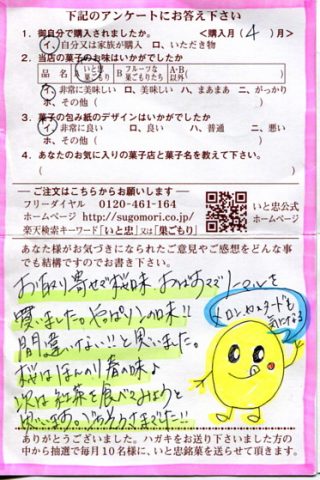 下記のアンケートにお答え下さい
1. 御自分で購入されましたか。 <購入月( 4 )月>
イ、自分又は家族が購入 ロ、いただき物
2. 当店の菓子のお味はいかがでしたか
品名 A いと忠巣ごもり B フルーツな巣ごもりたち A・B以外( )
イ、非常に美味しい ロ、美味しい ハ、まあまあ ニ、がっかり
ホ、その他( )
3. 菓子の包み紙のデザインはいかがでしたか
イ、非常に良い ロ、良い ハ、普通 ニ、悪い
ホ、その他( )
4. あなたのお気に入りの菓子店と菓子名を教えて下さい。
( )
ご注文はこちらからお願いします
フリーダイヤル 0120-461-164
ホームページ http://sugomori.co.jp/
楽天検索キーワード「いと忠」又は「巣ごもり」
いと忠公式
ホームページ
あなた様がお気づきになられたご意見やご感想をどんな事
でも結構ですのでお書き下さい。
お取り寄せで桜味、おばすてでノーマルを
買いました。やっぱりこの味!!
間違いない!!と思いました。
桜はほんのり春の味♪
次は紅茶を食べてみようと
思います。ごちそうさまでした!!
メロンカスタードも
気になる
ありがとうございました。ハガキをお送り下さいました方の
中から抽選で毎月10名様に、いと忠銘菓を送らせて頂きます。